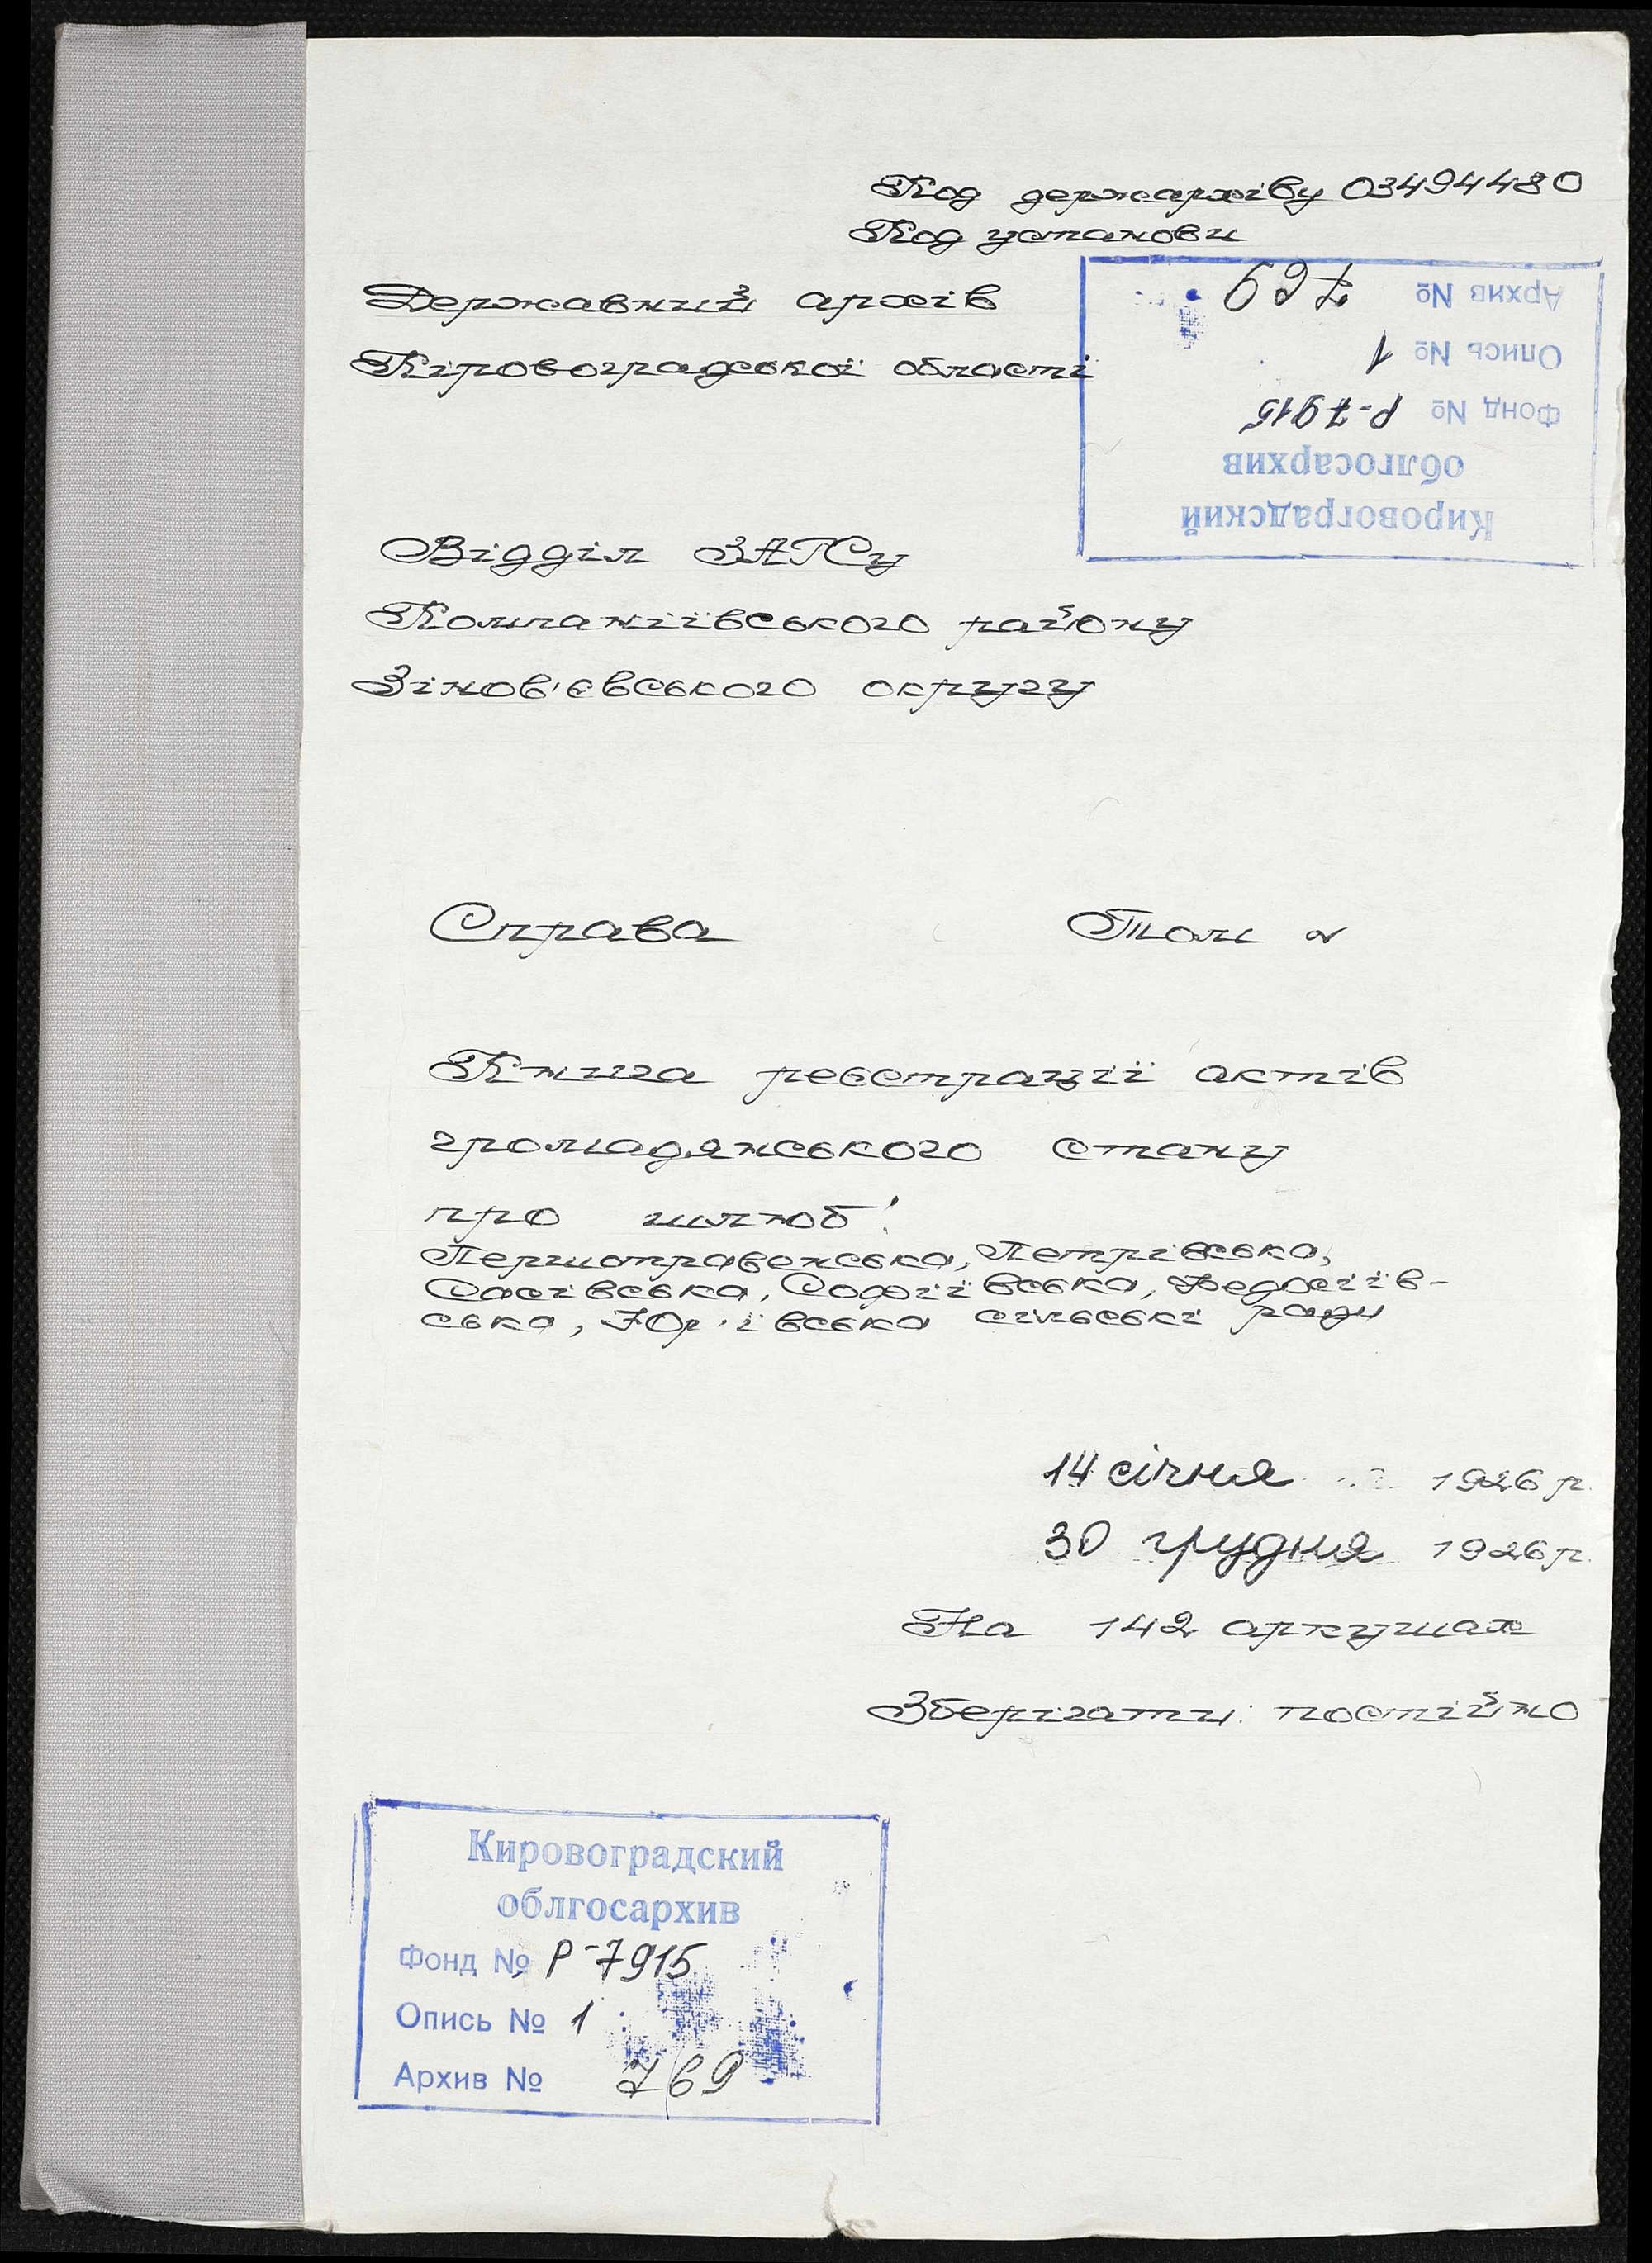 Код держархіву 03494480
Код установи
Державний архів
Кіровоградської області
Архив № 769
Опись № 1
Фонд № Р-7915
облгосархив
Кировоградский
Відділ ЗАГСу
Компаніївського району
Зінов'євського округу
Справа Том 2
Книга реєстрації актів
громадянського стану
про шлюб:
Першотравенська, Петрівська,
Сасівська, Софіївська, Федосіїв-
ська, Юр'ївська сільські ради
14 січня 1926 р.
30 грудня 1926 р.
На 142 аркушах
Зберігати: постійно
Кировоградский
облгосархив
Фонд № Р-7915
Опись № 1
Архив № 769